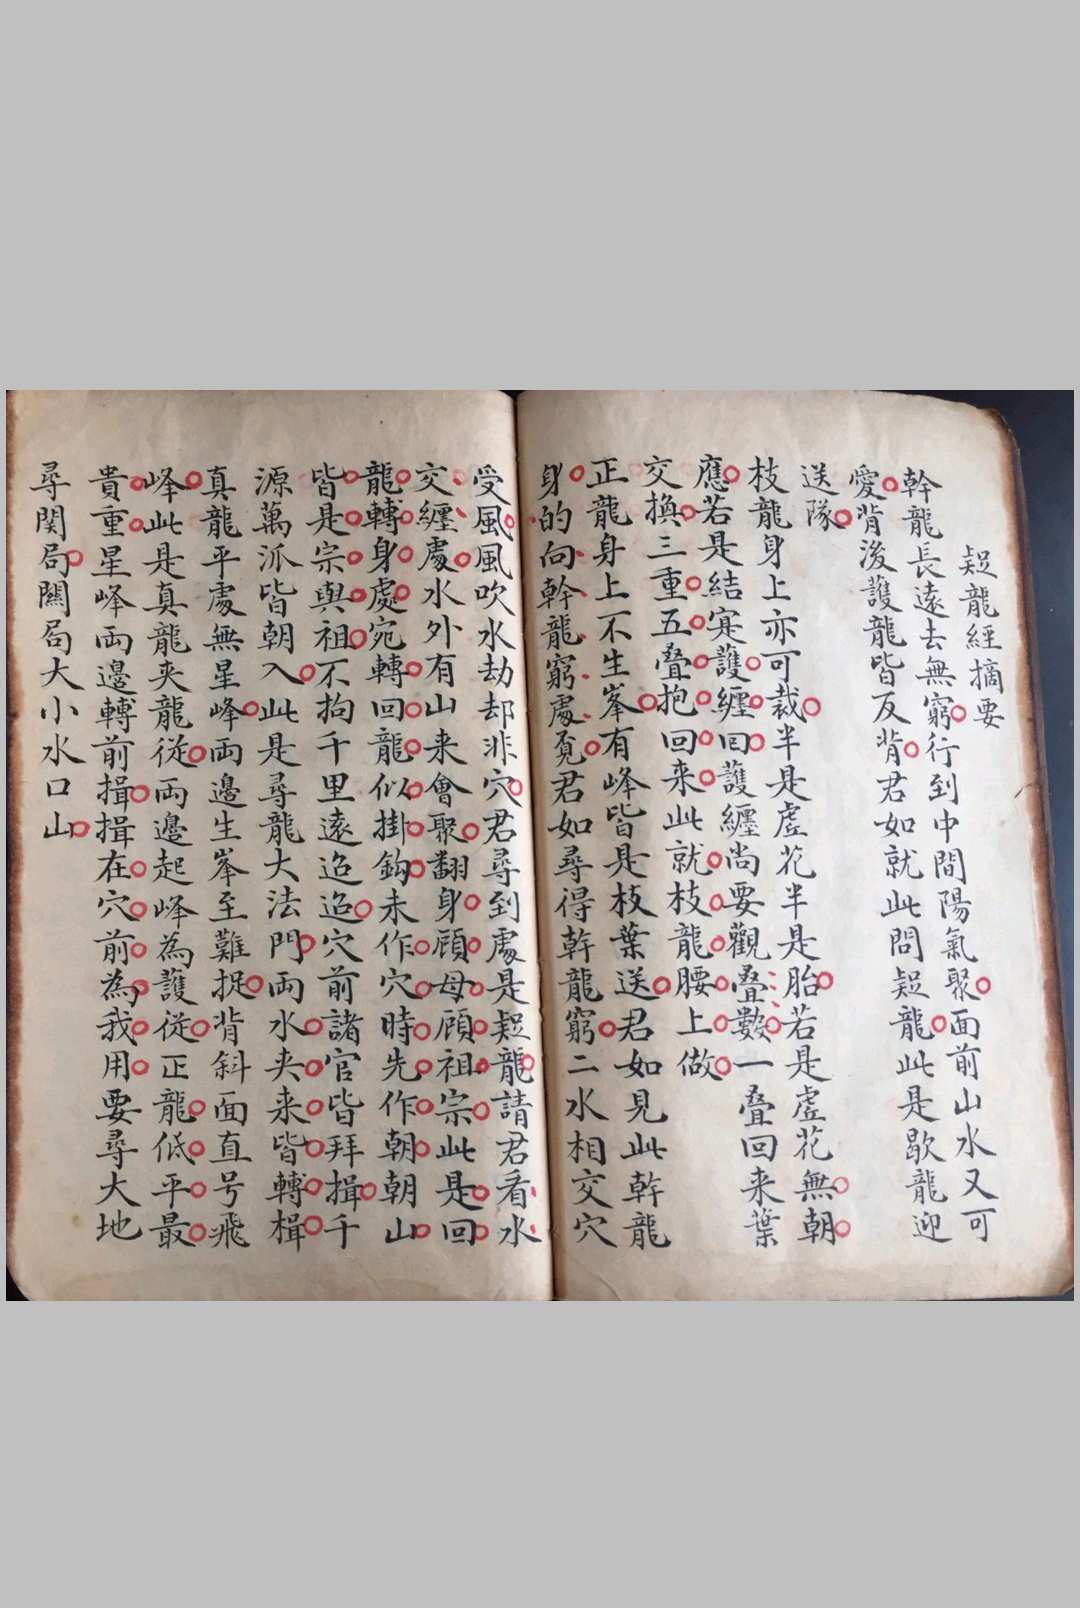 疑龍經摘要
幹龍長遠去無窮行到中間陽氣聚面前山水又可
愛背後護龍皆反背君如就此問疑龍此是歇龍迎
送隊
枝龍身上亦可裁半是虛花半是胎若是虛花無朝
應若是結寔護纏回護纏尚要觀叠數一叠回来葉
交換三重五叠抱回来此就枝龍腰上做
正龍身上不生峯有峰皆是枝葉送君如見此幹龍
身的向幹龍窮處覔君如尋得幹龍窮二水相交穴
受風風吹水劫却非穴君尋到處是疑龍請君看水
交纏處水外有山来會聚翻身顧母顧祖宗此是回
龍轉身處宛轉回龍似掛鈎未作穴時先作朝朝山
皆是宗與祖不拘千里遠迢迢穴前諸官皆拜揖千
源萬派皆朝入此是尋龍大法門兩水夹来皆轉揖
真龍平處無星峰兩邊生峯至難捉背斜面直号飛
峰此是真龍夹龍従兩邊起峰為護従正龍低平最
貴重星峰兩邊轉前揖揖在穴前為我用要尋大地
尋関局關局大小水口山